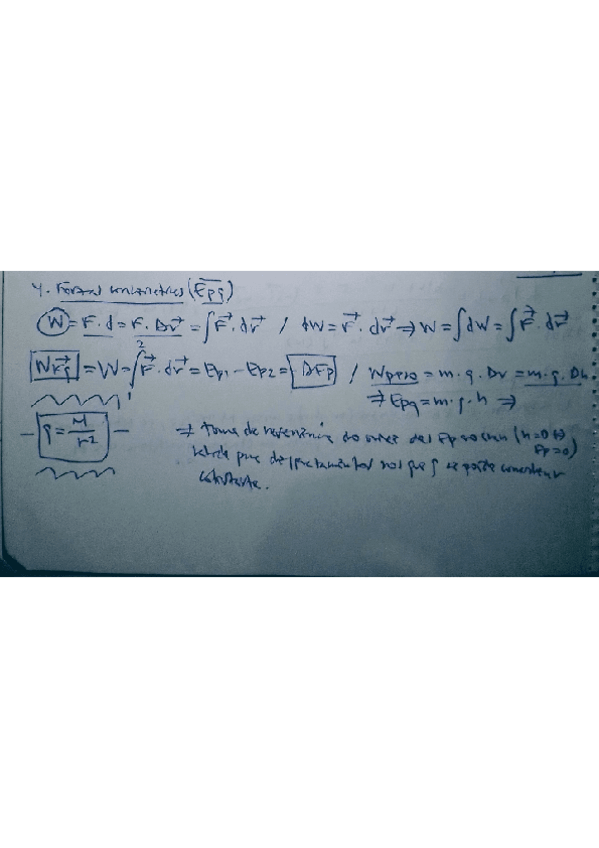 4. Forzas conservativas (Epg)
W = F · d = F · Δr⃗ = ∫F⃗ · dr⃗ / dW = F⃗ · dr⃗ ⇒ W = ∫dW = ∫F⃗ · dr⃗
WFg⃗ = W = ∫₁² F⃗ · dr⃗ = Ep1 - Ep2 = ΔEp / Wpeso = m · g · Δr = m · g · Δh
⇒ Epg = m · g · h ⇒
g = M/r²
⇒ toma de referencia do orixe das Ep no chan (h=0 ⇔ Ep=0)
válida para desprazamentos nos que g se pode considerar
constante.